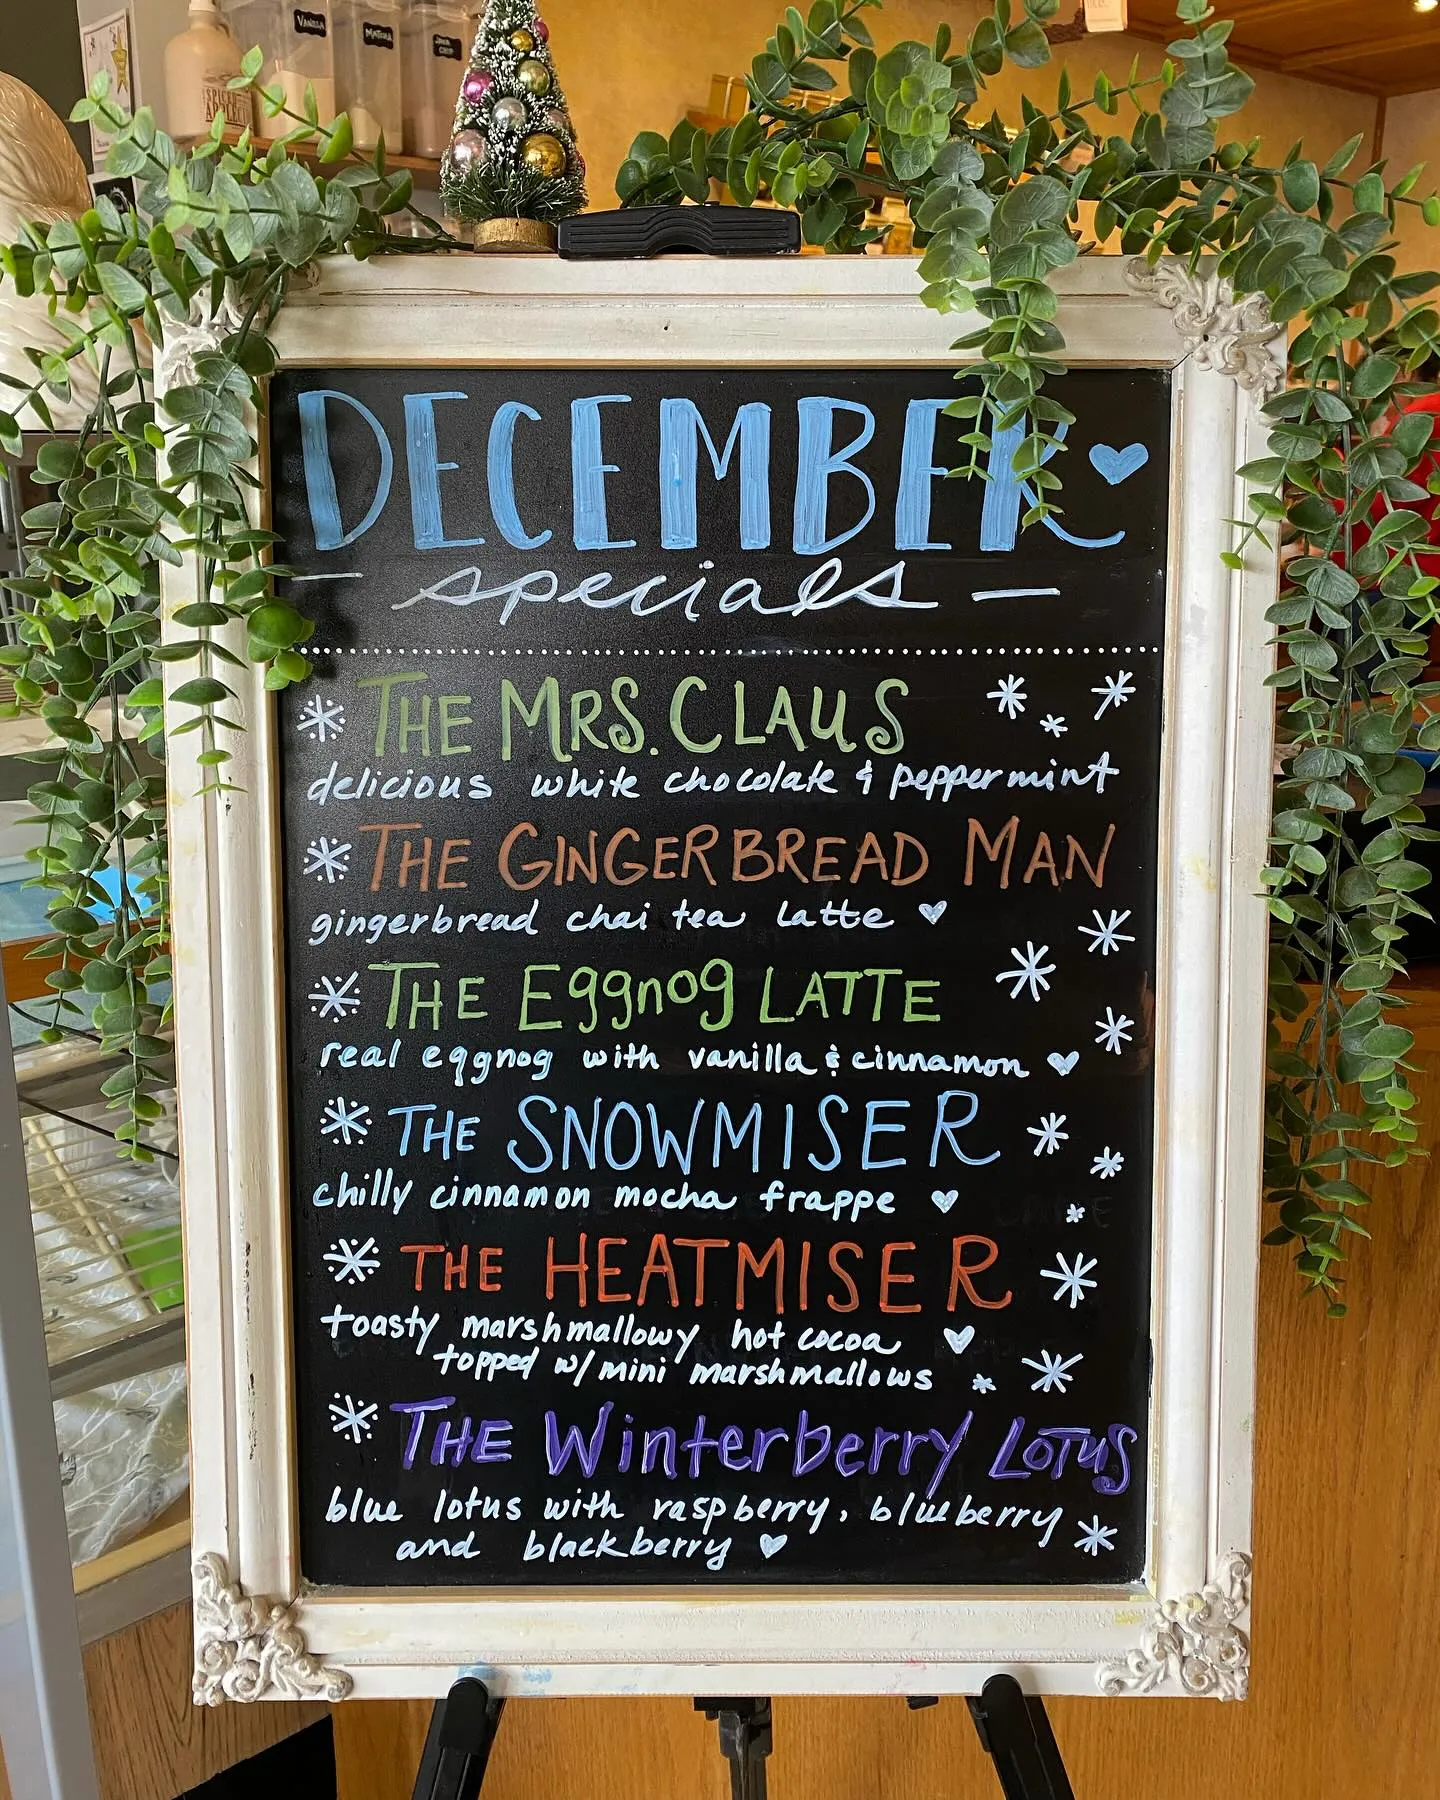 VANILLA
MATCHA
SPICED
APPLE CI
DECEMBER
- specials -
THE MRS. CLAUS
delicious white chocolate & peppermint
THE GINGERBREAD MAN
gingerbread chai tea latte
THE Eggnog LATTE
real eggnog with vanilla & cinnamon
THE SNOWMISER
chilly cinnamon mocha frappe
THE HEATMISER
toasty marshmallowy hot cocoa
topped w/ mini marshmallows
THE Winterberry LOTUS
blue lotus with raspberry, blueberry
and blackberry